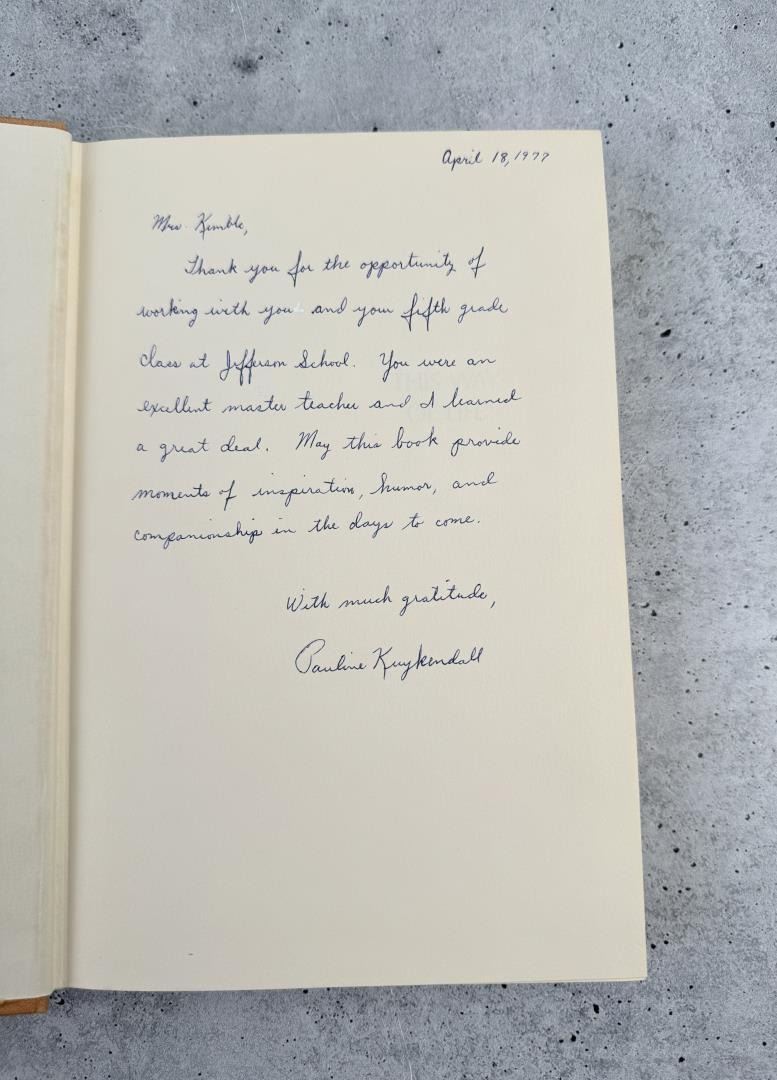 April 18, 1977
Mrs. Kimble,
Thank you for the opportunity of
working with you and your fifth grade
class at Jefferson School. You were an
excellent master teacher and I learned
a great deal. May this book provide
moments of inspiration, humor, and
companionship in the days to come.
With much gratitude,
Pauline Kuykendall